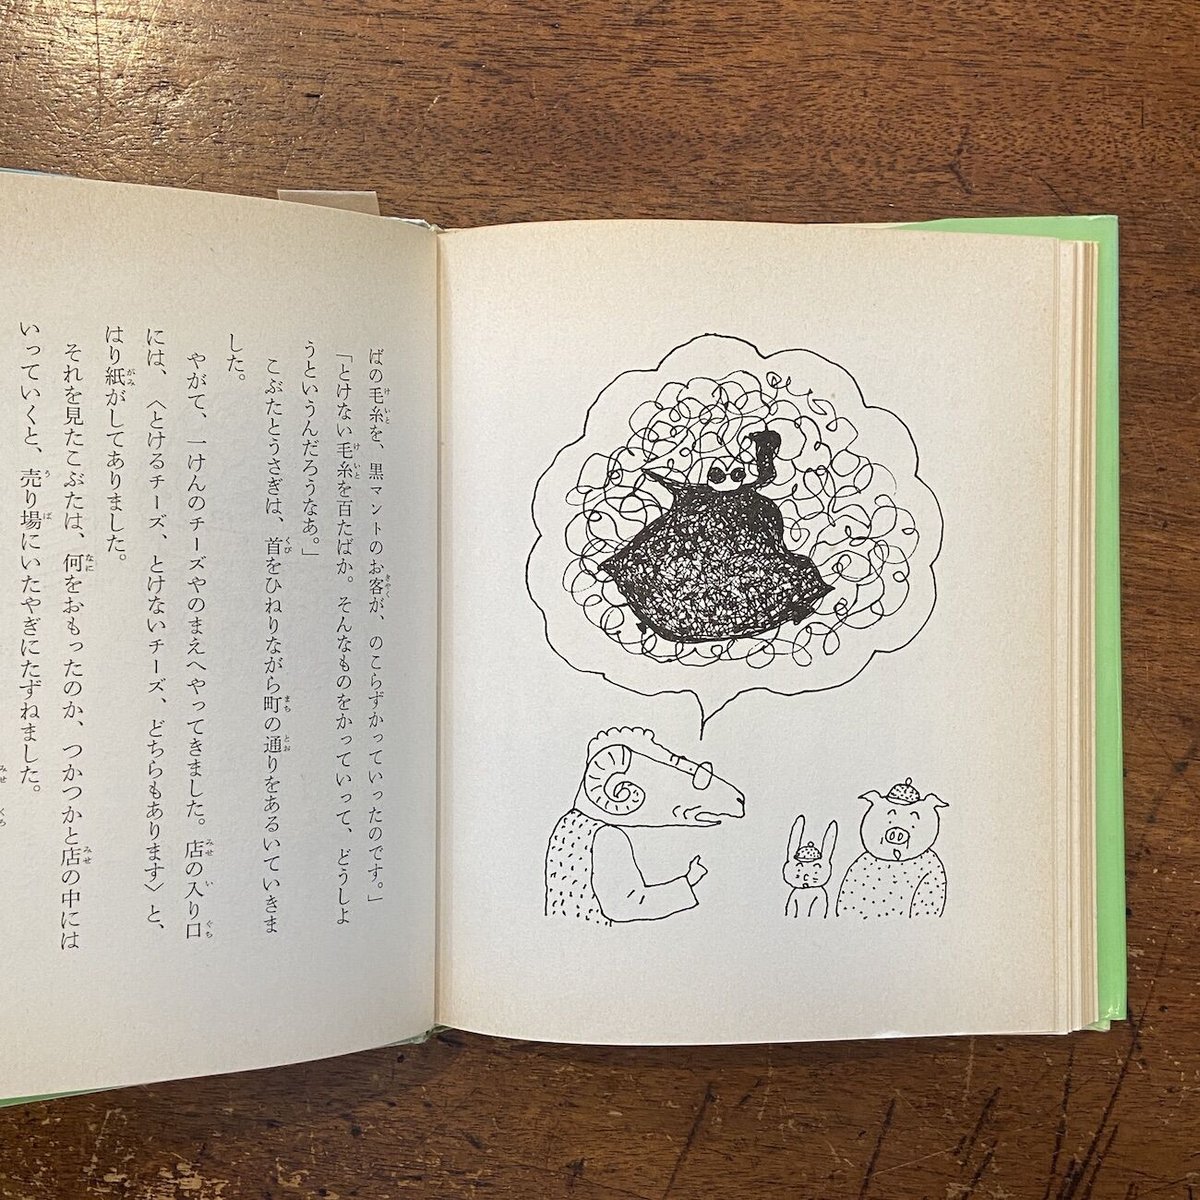 ばの毛糸を、黒マントのお客が、のこらずかっていったのです。」
「とけない毛糸を百たばか。そんなものをかっていって、どうしよ
うというんだろうなあ。」
こぶたとうさぎは、首をひねりながら町の通りをあるいていきま
した。
やがて、一けんのチーズやのまえへやってきました。店の入り口
には、〈とけるチーズ、とけないチーズ、どちらもあります〉と、
はり紙がしてありました。
それを見たこぶたは、何をおもったのか、つかつかと店の中には
いっていくと、売り場にいたやぎにたずねました。